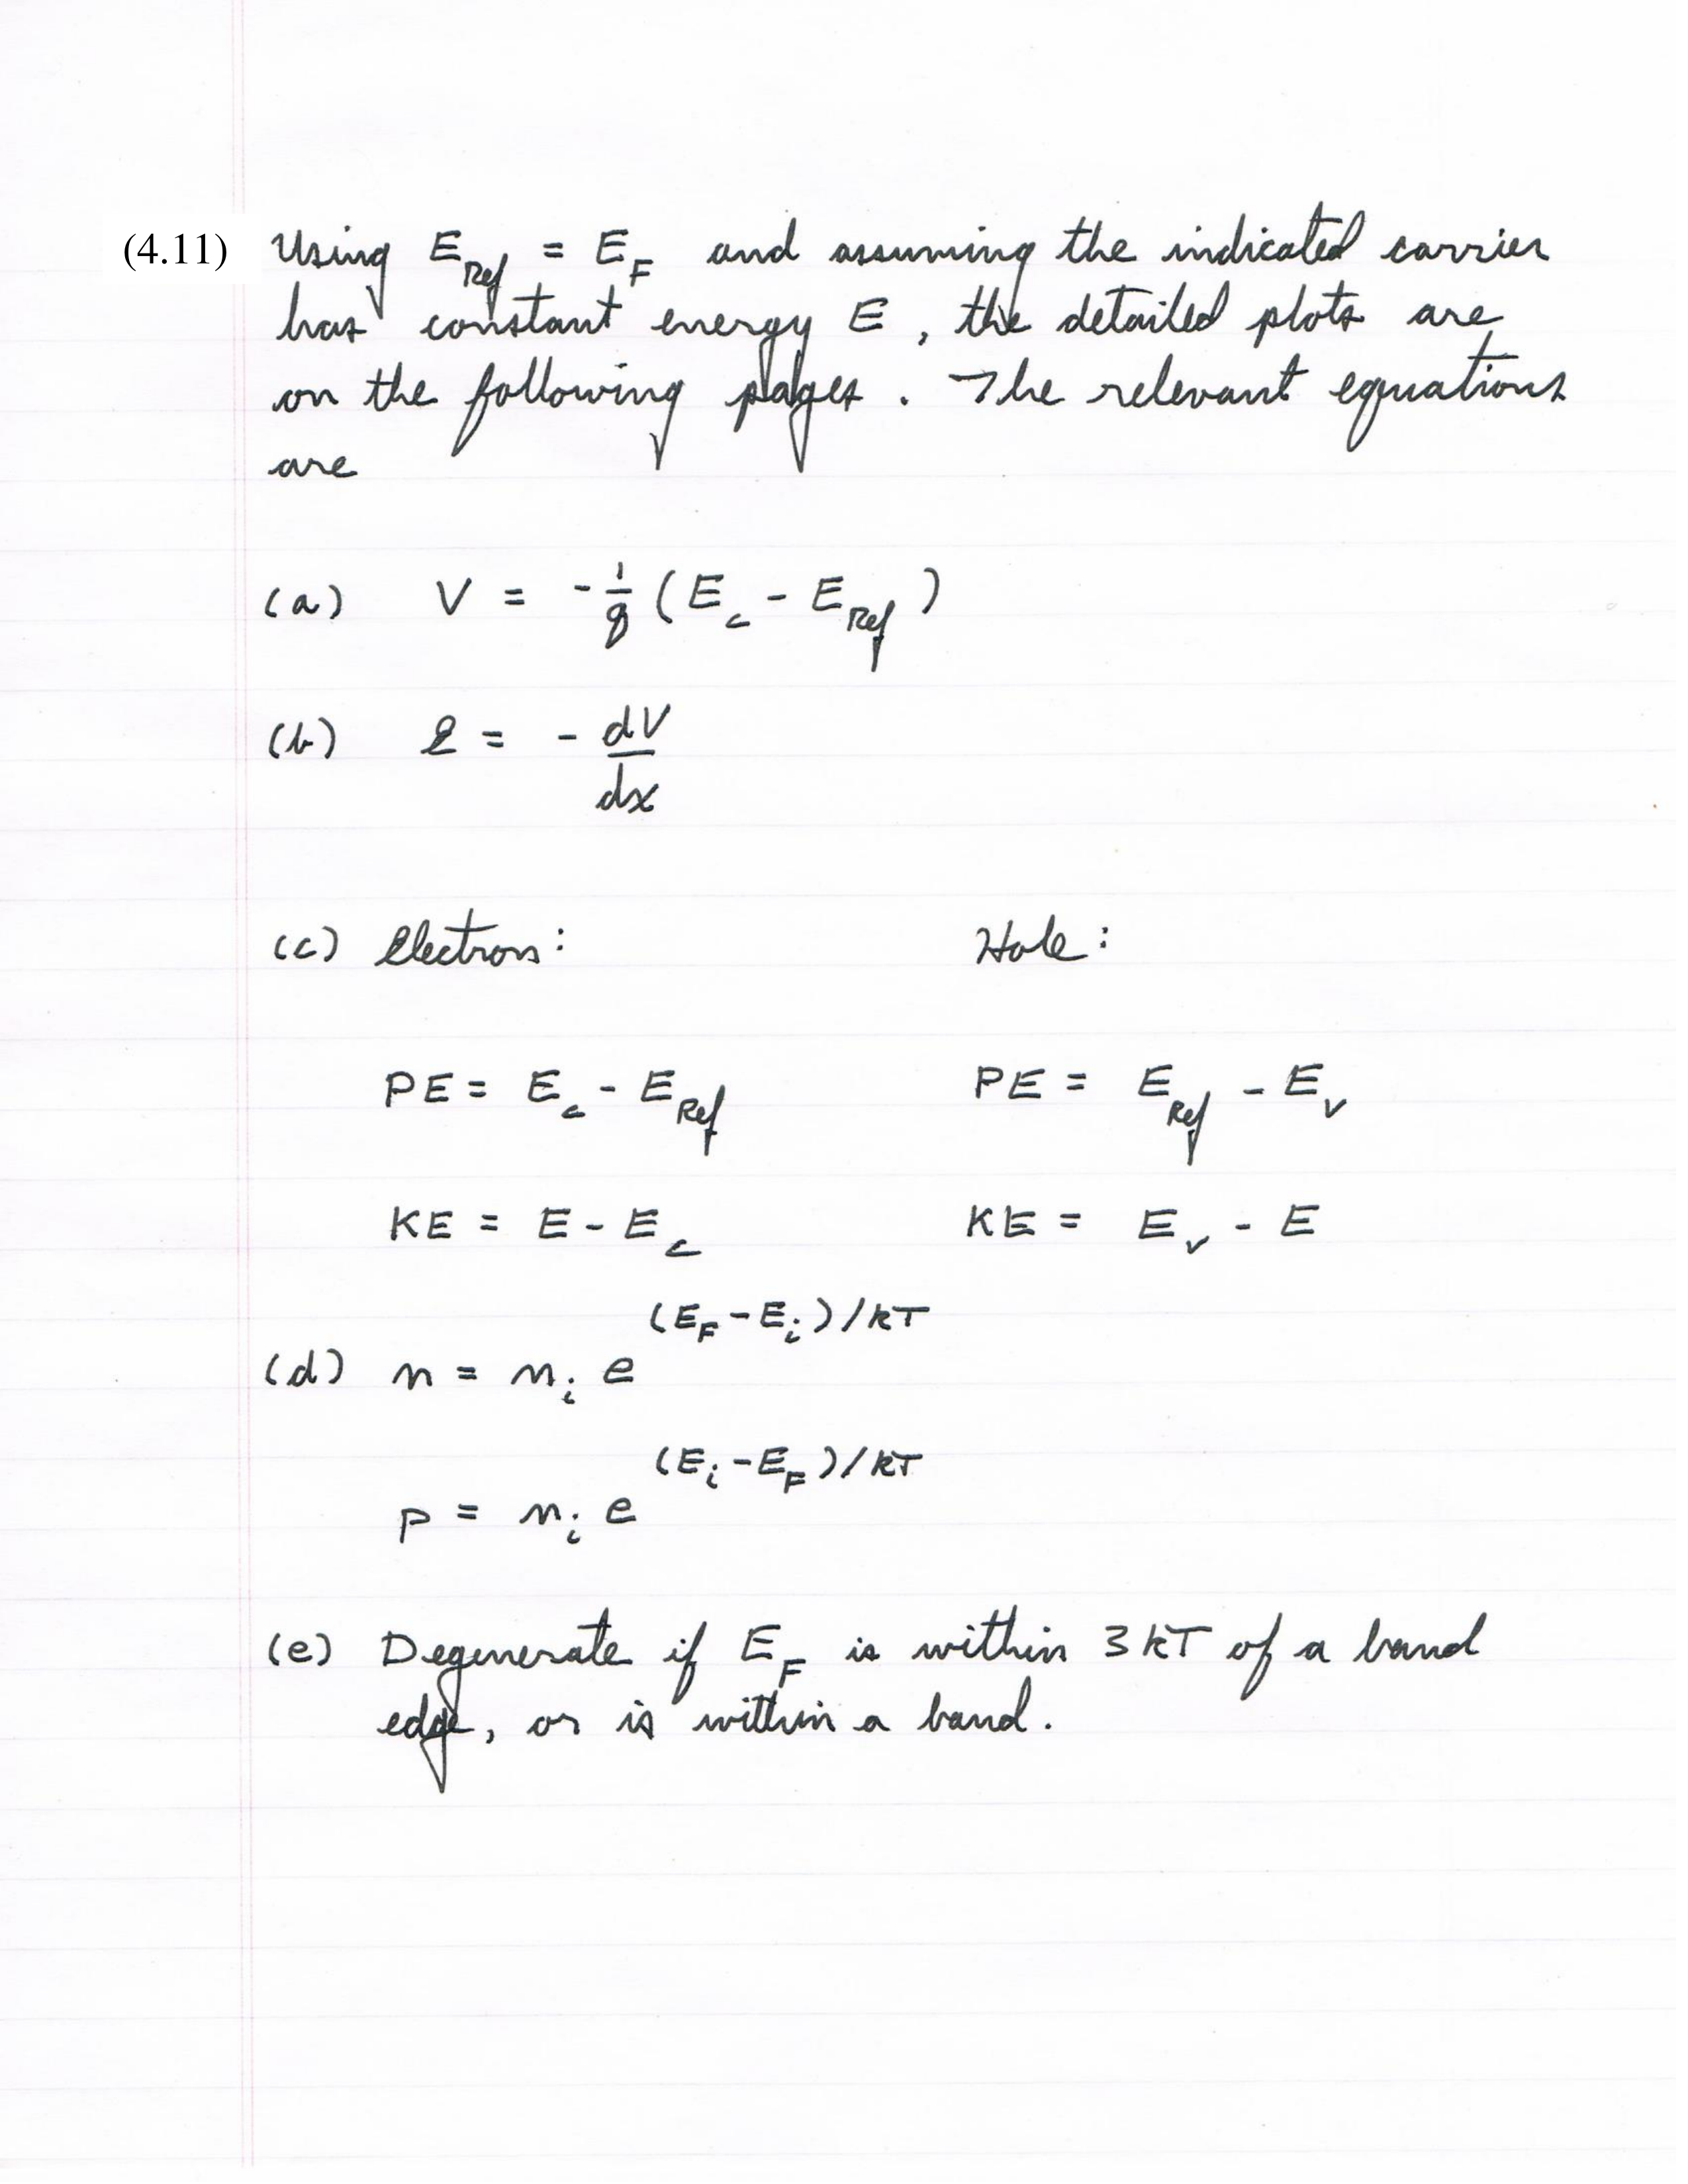 (4.11) Using E_Ref = E_F and assuming the indicated carrier
has constant energy E, the detailed plots are
on the following pages. The relevant equations
are
(a) V = -1/q (E_c - E_Ref)
(b) ℰ = - dV/dx
(c) Electron: Hole:
PE = E_c - E_Ref PE = E_Ref - E_v
KE = E - E_c KE = E_v - E
(d) n = n_i e^(E_F - E_i)/kT
p = n_i e^(E_i - E_F)/kT
(e) Degenerate if E_F is within 3kT of a band
edge, or is within a band.